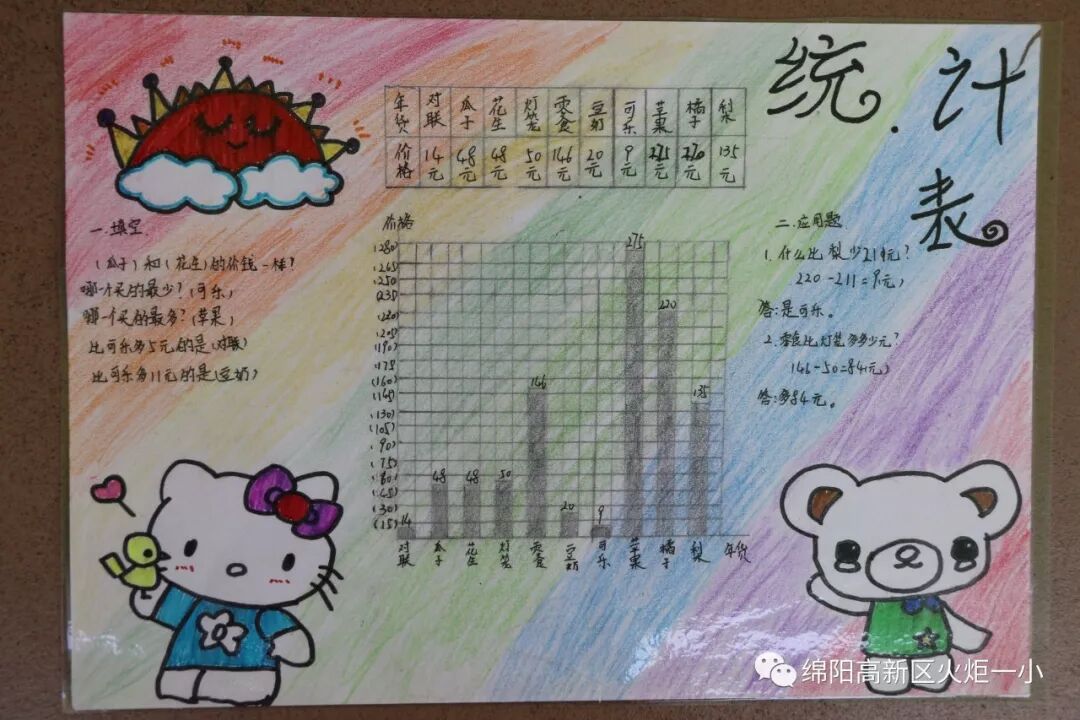 统计表
年货 对联 瓜子 花生 灯笼 零食 豆奶 可乐 苹果 橘子 梨
价格 14元 48元 48元 50元 146元 20元 9元 275元 220元 135元
一.填空
(瓜子)和(花生)的价钱一样?
哪一个买的最少?(可乐)
哪一个买的最多?(苹果)
比可乐多5元的是(对联)
比可乐多11元的是(豆奶)
价格
(280)
(265)
(250)
(235)
(220)
(205)
(190)
(175
(160)
(145)
(130)
(105)
(90)
(75
(60)
(45)
(30)
(15)
14 48 48 50 146 20 9 275 220 135
对联 瓜子 花生 灯笼 零食 豆奶 可乐 苹果 橘子 梨 年货
二.应用题
1.什么比梨少211元?
220-211=9(元)
答:是可乐。
2.零食比灯笼多多少元?
146-50=84(元)
答:多84元。
绵阳高新区火炬一小